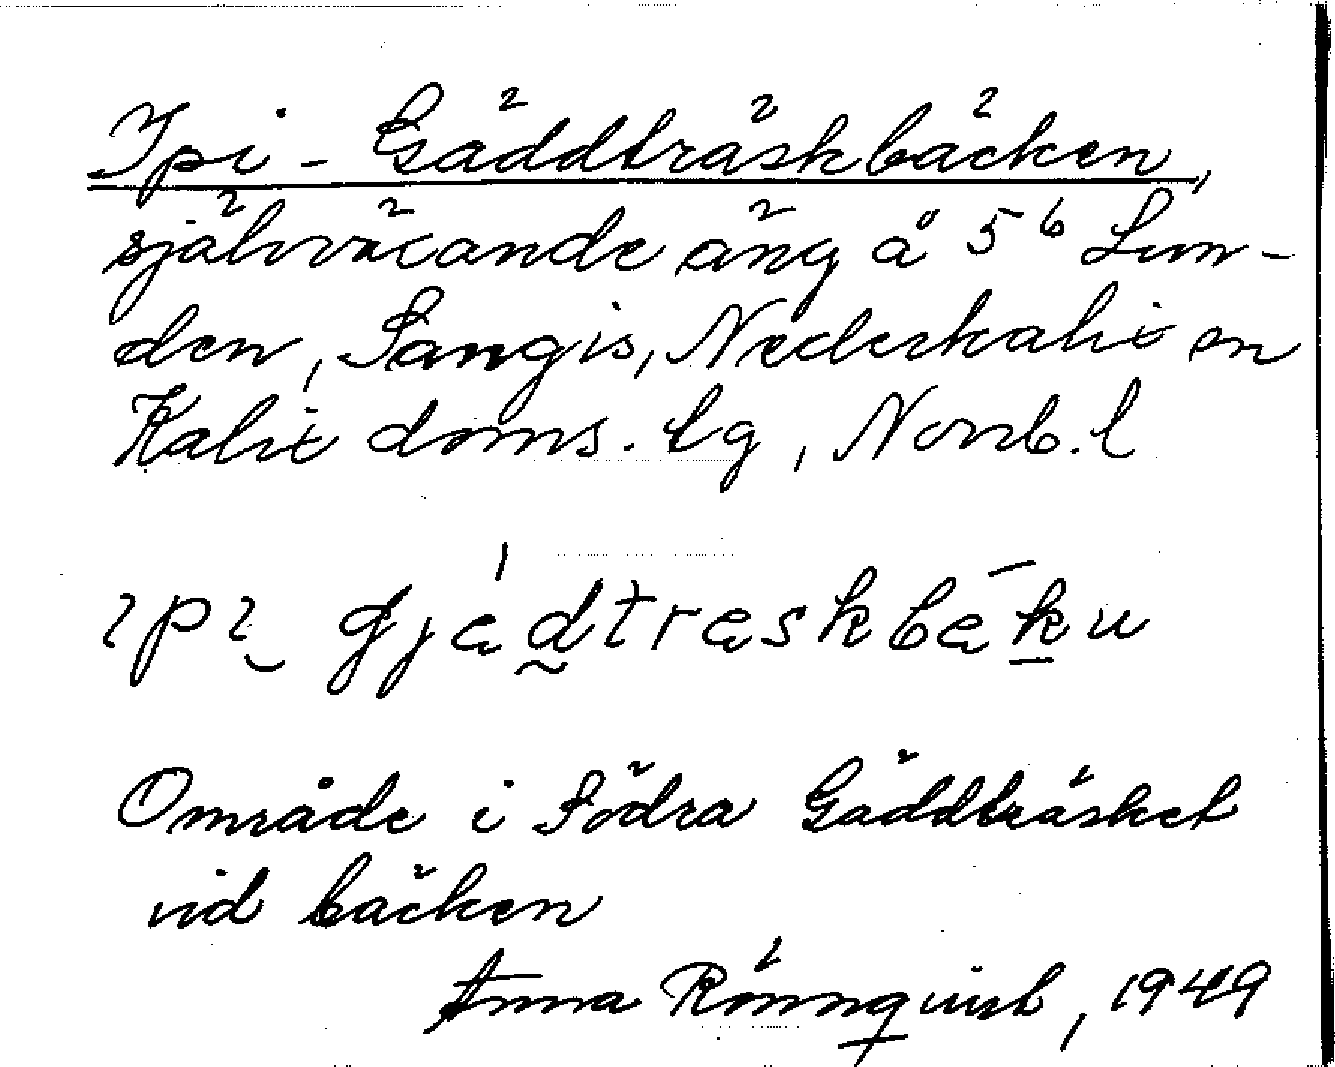 Ipi-Gäddträskbäcken,
självväxande äng å 5⁶ Lun-
den, Sangis, Nederkalix sn
Kalix doms. tg, Norrb. l
ɩpɩ gjædtræskbæku
Område i Södra Gäddträsket
vid bäcken
Anna Rönnqvist, 1949